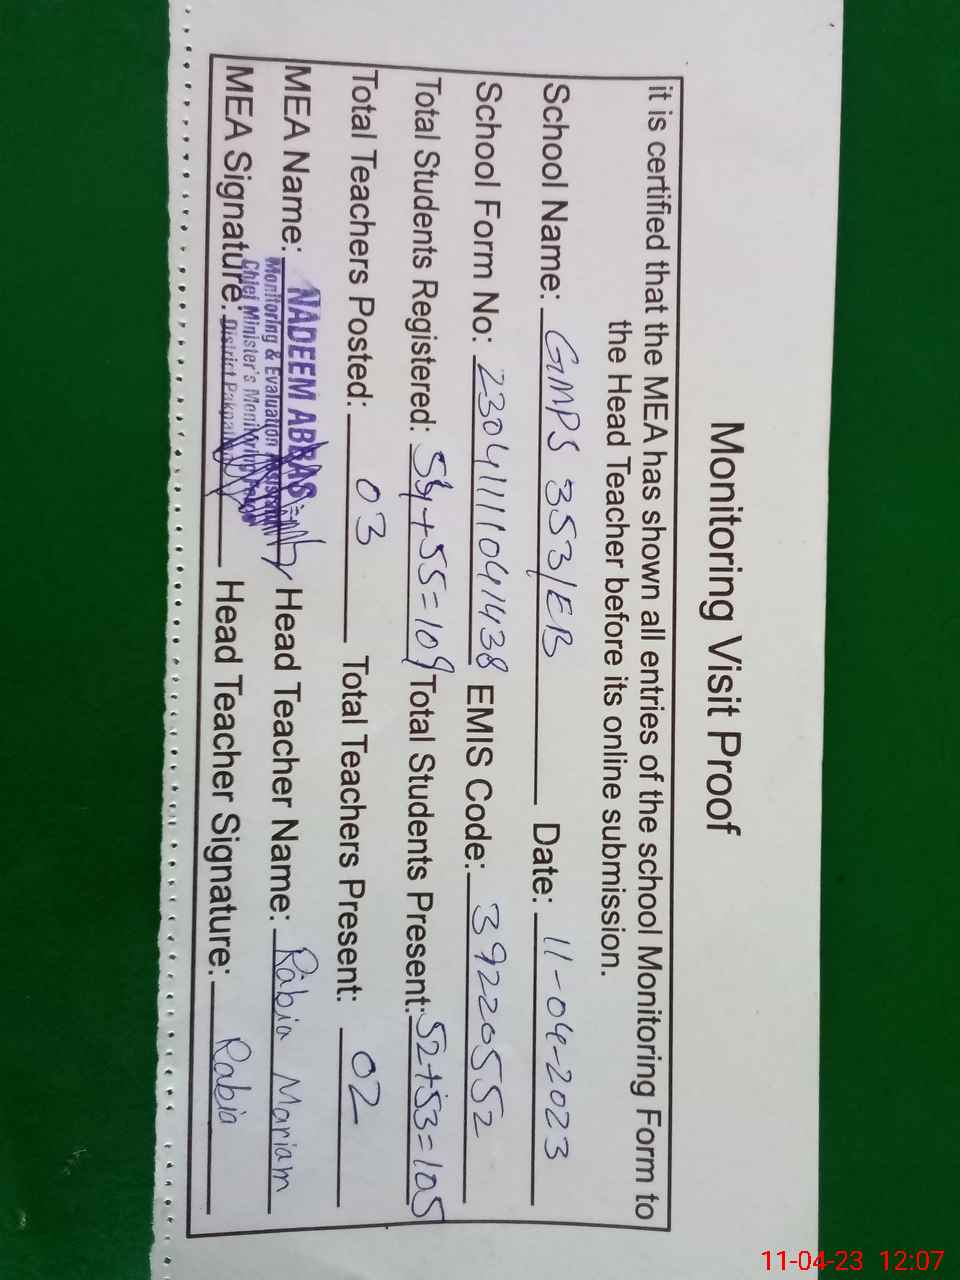 Monitoring Visit Proof
it is certified that the MEA has shown all entries of the school Monitoring Form to
the Head Teacher before its online submission.
School Name: GMPS 353/EB Date: 11-04-2023
School Form No: 2304111041438 EMIS Code: 39220552
Total Students Registered: 54+55=109 Total Students Present: 52+53=105
Total Teachers Posted: 03 Total Teachers Present: 02
MEA Name: NADEEM ABBAS Head Teacher Name: Rabia Mariam
Monitoring & Evaluation Assistant
Chief Minister's Monitoring Force
MEA Signature: District Pakpattan Head Teacher Signature: Rabia
11-04-23 12:07